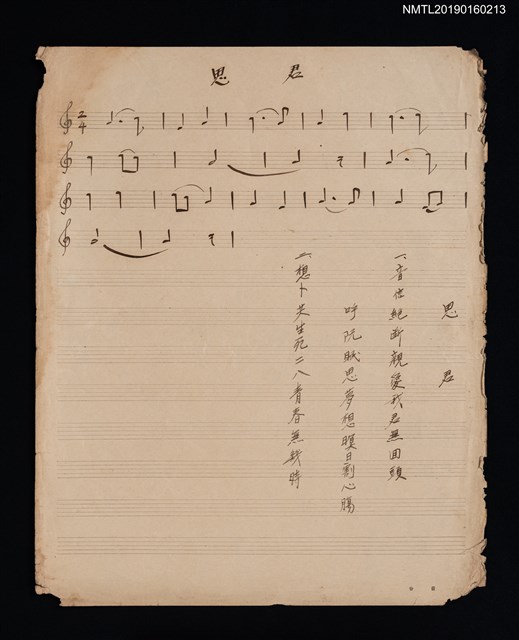 NMTL20190160213
思 君
2/4
思 君
一、音信絕斷親愛我君無回頭
呼阮眠思夢想暝日割心腸
二、想卜共生死二八青春無幾時